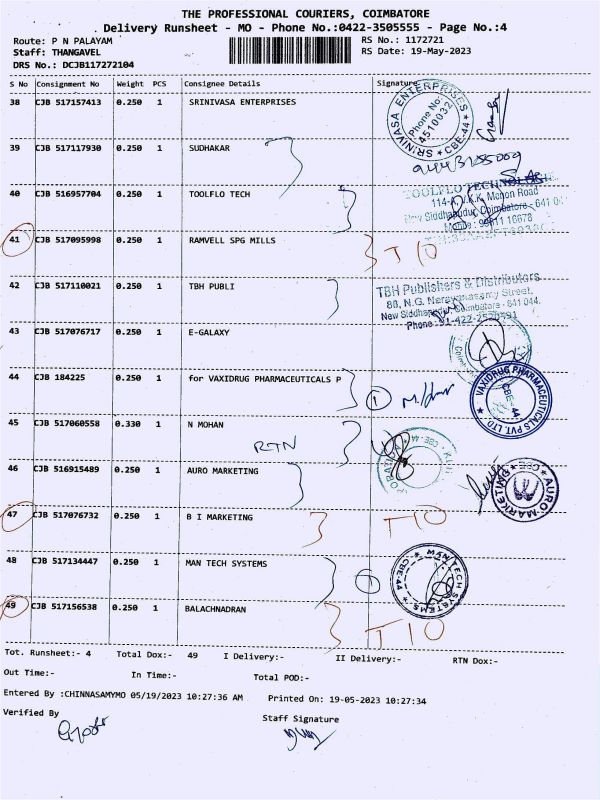 THE PROFESSIONAL COURIERS, COIMBATORE
Delivery Runsheet - MO - Phone No.:0422-3505555 - Page No.:4
Route: P N PALAYAM
RS No.: 1172721
Staff: THANGAVEL
RS Date: 19-May-2023
DRS No.: DCJB117272104
S No Consignment No Weight PCS Consignee Details Signature
38 CJB 517157413 0.250 1 SRINIVASA ENTERPRISES
SRINIVASA ENTERPRISES CBE-44
Phone No: 4510032
39 CJB 517117930 0.250 1 SUDHAKAR
40 CJB 516957704 0.250 1 TOOLFLO TECH
TOOLFLO TECHNOLOGIES
114-A, V.K.K. Menon Road
New Siddhapudur, Coimbatore - 641 04
41 CJB 517095998 0.250 1 RAMVELL SPG MILLS
T10
42 CJB 517110021 0.250 1 TBH PUBLI
TBH Publishers & Distributors
88, N.G. Narayanasamy Street,
New Siddhapudur, Coimbatore - 641 044.
43 CJB 517076717 0.250 1 E-GALAXY
44 CJB 184225 0.250 1 for VAXIDRUG PHARMACEUTICALS P
1
VAXIDRUG PHARMACEUTICALS PVT. LTD
CBE-44
45 CJB 517060558 0.330 1 N MOHAN
RTN
46 CJB 516915489 0.250 1 AURO MARKETING
AURO MARKETING CBE
47 CJB 517076732 0.250 1 B I MARKETING
T10
48 CJB 517134447 0.250 1 MAN TECH SYSTEMS
1
MAN TECH SYSTEMS CBE-44
49 CJB 517156538 0.250 1 BALACHNADRAN
T10
Tot. Runsheet:- 4 Total Dox:- 49 I Delivery:- II Delivery:- RTN Dox:-
Out Time:- In Time:- Total POD:-
Entered By :CHINNASAMYMO 05/19/2023 10:27:36 AM Printed On: 19-05-2023 10:27:34
Verified By
Staff Signature